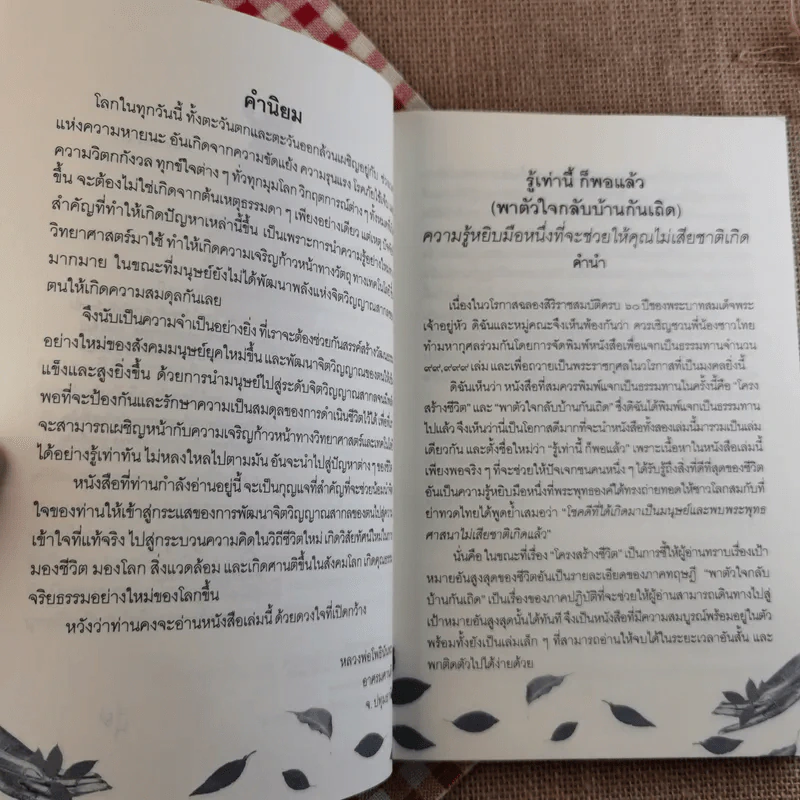 คำนิยม
โลกในทุกวันนี้ ทั้งตะวันตกและตะวันออกล้วนเผชิญอยู่กับ
แห่งความหายนะ อันเกิดจากความขัดแย้ง ความรุนแรง โรคภัยไข้เจ็บ
ความวิตกกังวล ทุกข์ใจต่าง ๆ ทั่วทุกมุมโลก วิกฤตการณ์ต่าง ๆ
ขึ้น จะต้องไม่ใช่เกิดจากต้นเหตุธรรมดา ๆ เพียงอย่างเดียว แต่เหตุ
สำคัญที่ทำให้เกิดปัญหาเหล่านี้ขึ้น เป็นเพราะการนำความรู้อย่างใหม่
วิทยาศาสตร์มาใช้ ทำให้เกิดความเจริญก้าวหน้าทางวัตถุ
มากมาย ในขณะที่มนุษย์ยังไม่ได้พัฒนาพลังแห่งจิตวิญญาณสากล
ตนให้เกิดความสมดุลกันเลย
จึงนับเป็นความจำเป็นอย่างยิ่ง ที่เราจะต้องช่วยกันสรรค์สร้าง
อย่างใหม่ของสังคมมนุษย์ยุคใหม่ขึ้น และพัฒนาจิตวิญญาณของตนให้
แข็งและสูงยิ่งขึ้น ด้วยการนำมนุษย์ไปสู่ระดับจิตวิญญาณสากล
พอที่จะป้องกันและรักษาความเป็นสมดุลของการดำเนินชีวิตไว้ได้
จะสามารถเผชิญหน้ากับความเจริญก้าวหน้าทางวิทยาศาสตร์และเทคโนโลยี
ได้อย่างรู้เท่าทัน ไม่หลงใหลไปตามมัน อันจะนำไปสู่ปัญหาต่าง ๆ
หนังสือที่ท่านกำลังอ่านอยู่นี้ จะเป็นกุญแจที่สำคัญที่จะช่วย
ใจของท่านให้เข้าสู่กระแสของการพัฒนาจิตวิญญาณสากลของตน
เข้าใจที่แท้จริง ไปสู่กระบวนความคิดในวิถีชีวิตใหม่ เกิดวิสัยทัศน์ใหม่
มองชีวิต มองโลก สิ่งแวดล้อม และเกิดศานติขึ้นในสังคมโลก
จริยธรรมอย่างใหม่ของโลกขึ้น
หวังว่าท่านคงจะอ่านหนังสือเล่มนี้ ด้วยดวงใจที่เปิดกว้าง
หลวงพ่อ
จ.
รู้เท่านี้ ก็พอแล้ว
(พาตัวใจกลับบ้านกันเถิด)
ความรู้หยิบมือหนึ่งที่จะช่วยให้คุณไม่เสียชาติเกิด
คำนำ
เนื่องในวโรกาสฉลองสิริราชสมบัติครบ ๖๐ ปีของพระบาทสมเด็จพระ
เจ้าอยู่หัว ดิฉันและหมู่คณะจึงเห็นพ้องกันว่า ควรเชิญชวนพี่น้องชาวไทย
ทำมหากุศลร่วมกันโดยการจัดพิมพ์หนังสือเพื่อแจกเป็นธรรมทานจำนวน
๙๙,๙๙๙ เล่ม และเพื่อถวายเป็นพระราชกุศลในวโรกาสที่เป็นมงคลยิ่งนี้
ดิฉันเห็นว่า หนังสือที่สมควรพิมพ์แจกเป็นธรรมทานในครั้งนี้คือ "โครง
สร้างชีวิต" และ "พาตัวใจกลับบ้านกันเถิด" ซึ่งดิฉันได้พิมพ์แจกเป็นธรรมทาน
ไปแล้ว จึงเห็นว่านี่เป็นโอกาสดีมากที่จะนำหนังสือทั้งสองเล่มนี้มารวมเป็นเล่ม
เดียวกัน และตั้งชื่อใหม่ว่า "รู้เท่านี้ ก็พอแล้ว" เพราะเนื้อหาในหนังสือเล่มนี้
เพียงพอจริง ๆ ที่จะช่วยให้ปัจเจกชนคนหนึ่ง ๆ ได้รับรู้ถึงสิ่งที่ดีที่สุดของชีวิต
อันเป็นความรู้หยิบมือหนึ่งที่พระพุทธองค์ได้ทรงถ่ายทอดให้ชาวโลกสมกับที่
ย่าทวดไทยได้พูดย้ำเสมอว่า "โชคดีที่ได้เกิดมาเป็นมนุษย์และพบพระพุทธ
ศาสนาไม่เสียชาติเกิดแล้ว"
นั่นคือ ในขณะที่เรื่อง "โครงสร้างชีวิต" เป็นการชี้ให้ผู้อ่านทราบเรื่องเป้า
หมายอันสูงสุดของชีวิตอันเป็นรายละเอียดของภาคทฤษฎี "พาตัวใจกลับ
บ้านกันเถิด" เป็นเรื่องของภาคปฏิบัติที่จะช่วยให้ผู้อ่านสามารถเดินทางไปสู่
เป้าหมายอันสูงสุดนั้นได้ทันที จึงเป็นหนังสือที่มีความสมบูรณ์พร้อมอยู่ในตัว
พร้อมทั้งยังเป็นเล่มเล็ก ๆ ที่สามารถอ่านให้จบได้ในระยะเวลาอันสั้น และ
พกติดตัวไปได้ง่ายด้วย